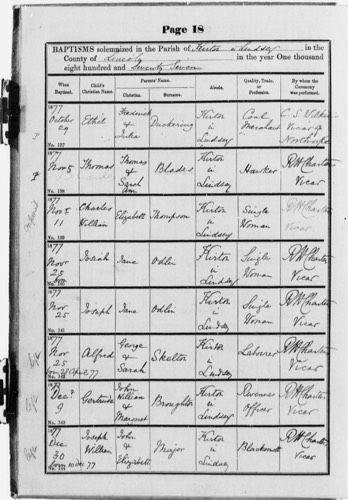 Page 18
BAPTISMS solemnized in the Parish of Kirton in Lindsey in the
County of Lincoln in the year One thousand
eight hundred and Seventy Seven
When Baptized. Child's Christian Name. Parents' Name. Christian. Surname. Abode. Quality, Trade, or Profession. By whom the Ceremony was performed.
1877 October 29 No. 137 Ethel Frederick & Julia Duckering Kirton in Lindsey Coal Merchant Vicar of Northorpe
1877 Nov 5 No. 138 Thomas Thomas & Sarah Ann Blades Kirton in Lindsey Hawker R W Charlton Vicar
1877 Nov 11 No. 139 Charles William Elizabeth Thompson Kirton in Lindsey Single Woman R W Charlton Vicar
1877 Nov 25 No. 140 Josiah Jane Odlin Kirton in Lindsey Single Woman R W Charlton Vicar
1877 Nov 25 No. 141 Joseph Jane Odlin Kirton in Lindsey Single Woman R W Charlton Vicar
1877 Nov 25 Alfred George & Sarah Skelton Kirton in Lindsey Labourer R W Charlton Vicar
1877 Dec 9 No. 143 Gertrude John William & Margaret Broughton Kirton in Lindsey Revenue Officer R W Charlton Vicar
1877 Dec 30 Joseph William John & Elizabeth Major Kirton in Lindsey Blacksmith R W Charlton Vicar